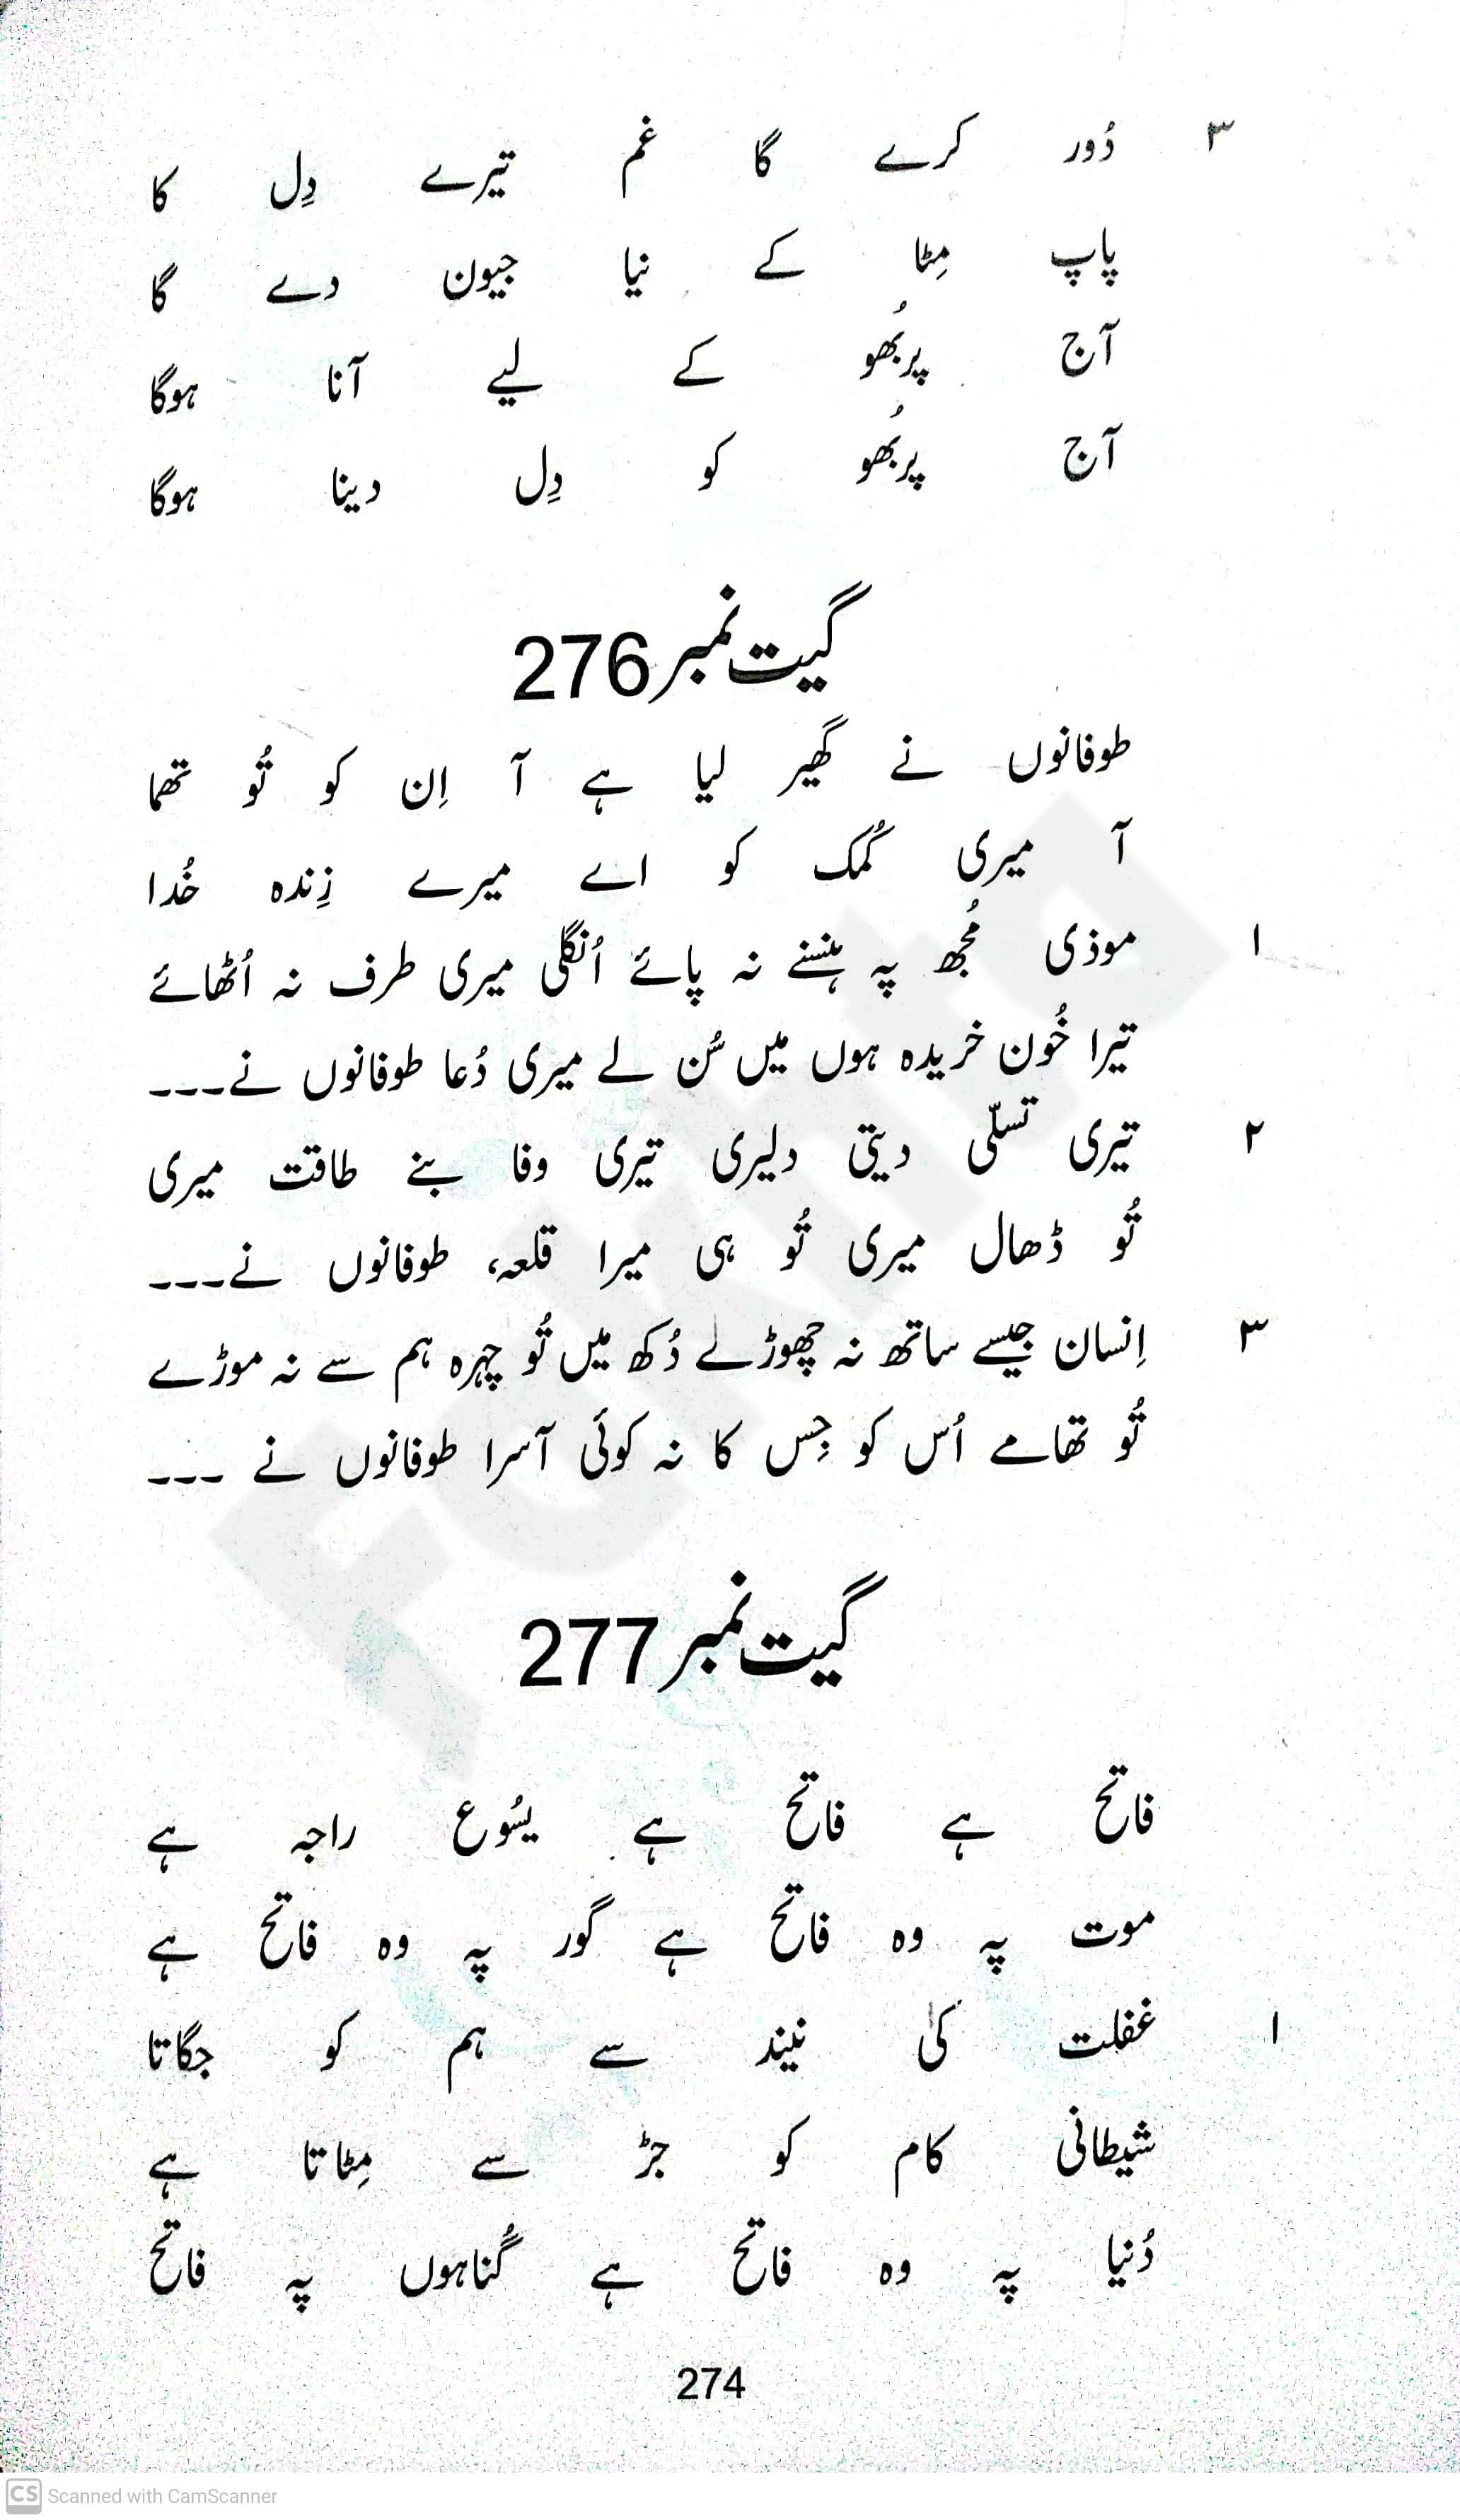 ۳ دُور کرے گا غم تیرے دِل کا
پاپ مِٹا کے نیا جیون دے گا
آج پربُھو کے لیے آنا ہوگا
آج پربُھو کو دِل دینا ہوگا
گیت نمبر 276
طوفانوں نے گھیر لیا ہے آ اِن کو تُو تھما
آ میری کُمک کو اے میرے زِندہ خُدا
۱ موذی مُجھ پہ ہنسنے نہ پائے اُنگلی میری طرف نہ اُٹھائے
تیرا خُون خریدہ ہوں میں سُن لے میری دُعا طوفانوں نے۔۔۔
۲ تیری تسلّی دیتی دلیری تیری وفا بنے طاقت میری
تُو ڈھال میری تُو ہی میرا قلعہ، طوفانوں نے۔۔۔
۳ اِنسان جیسے ساتھ نہ چھوڑے دُکھ میں تُو چہرہ ہم سے نہ موڑے
تُو تھامے اُس کو جِس کا نہ کوئی آسرا طوفانوں نے ۔۔۔
گیت نمبر 277
فاتح ہے فاتح ہے یسُوع راجہ ہے
موت پہ وہ فاتح ہے گور پہ وہ فاتح ہے
۱ غفلت کی نیند سے ہم کو جگاتا
شیطانی کام کو جڑ سے مِٹاتا ہے
دُنیا پہ وہ فاتح ہے گُناہوں پہ فاتح
274
CS Scanned with CamScanner
Fakhta